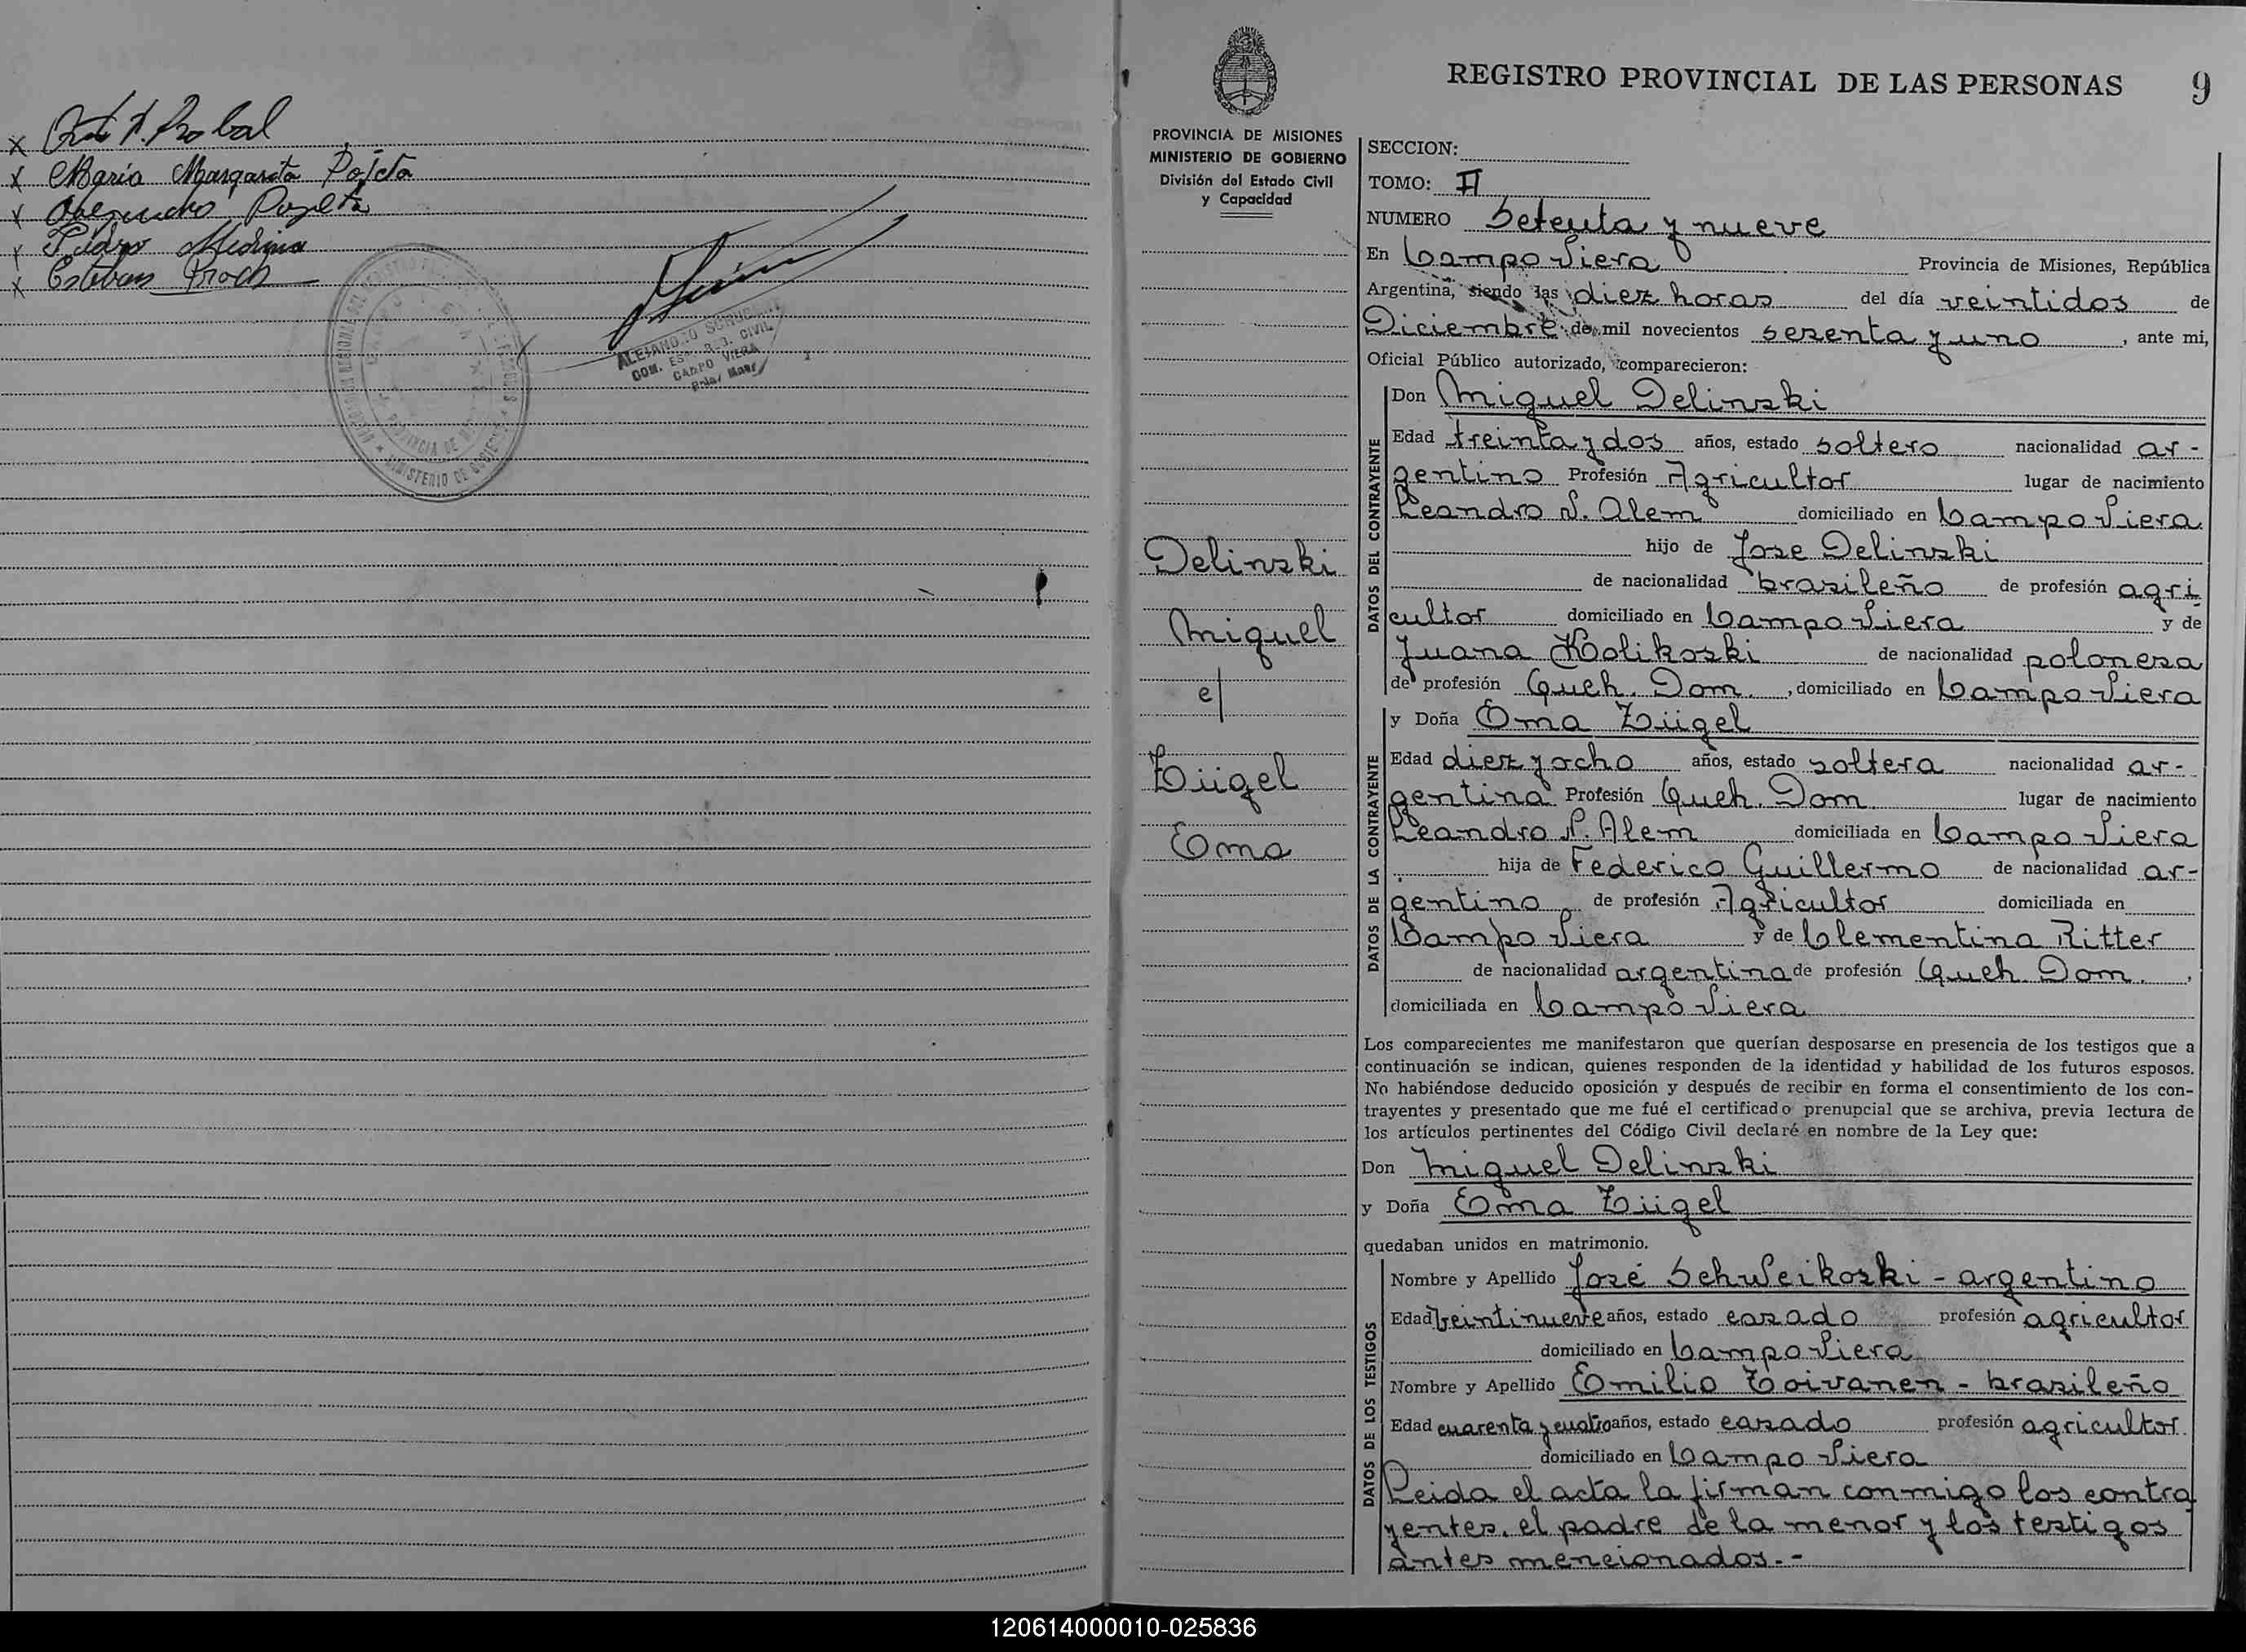 x Probal
x Maria Margarita Pojeta
x Pozeta
x Isidro Medina
x Esteban Proch
ALEJANDRO
CAMPO VIERA
PROVINCIA DE
MINISTERIO DE GOBIERNO
REGISTRO PROVINCIAL DE LAS PERSONAS 9
PROVINCIA DE MISIONES
MINISTERIO DE GOBIERNO
División del Estado Civil
y Capacidad
Delinski
Miguel
e/
Zügel
Ema
SECCION:
TOMO: II
NUMERO Setenta y nueve
En Campo Viera Provincia de Misiones, República
Argentina, siendo las diez horas del día veintidos de
Diciembre de mil novecientos sesenta y uno, ante mi,
Oficial Público autorizado, comparecieron:
DATOS DEL CONTRAYENTE
Don Miguel Delinski
Edad treinta y dos años, estado soltero nacionalidad ar-
gentino Profesión Agricultor lugar de nacimiento
Leandro N. Alem domiciliado en Campo Viera
hijo de Jose Delinski
de nacionalidad brasileño de profesión agri
cultor domiciliado en Campo Viera y de
Juana Kolikoski de nacionalidad polonesa
de profesión Queh. Dom. , domiciliado en Campo Viera
DATOS DE LA CONTRAYENTE
y Doña Ema Zügel
Edad diez y ocho años, estado soltera nacionalidad ar-
gentina Profesión Queh. Dom lugar de nacimiento
Leandro N. Alem domiciliada en Campo Viera
hija de Federico Guillermo de nacionalidad ar-
gentino de profesión Agricultor domiciliada en
Campo Viera y de Clementina Ritter
de nacionalidad argentina de profesión Queh. Dom. ,
domiciliada en Campo Viera
Los comparecientes me manifestaron que querían desposarse en presencia de los testigos que a
continuación se indican, quienes responden de la identidad y habilidad de los futuros esposos.
No habiéndose deducido oposición y después de recibir en forma el consentimiento de los con-
trayentes y presentado que me fué el certificado prenupcial que se archiva, previa lectura de
los artículos pertinentes del Código Civil declaré en nombre de la Ley que:
Don Miguel Delinski
y Doña Ema Zügel
quedaban unidos en matrimonio.
DATOS DE LOS TESTIGOS
Nombre y Apellido José Schveikoski - argentino
Edad veintinueve años, estado casado profesión agricultor
domiciliado en Campo Viera
Nombre y Apellido Emilio Toivanen - brasileño
Edad cuarenta y cuatro años, estado casado profesión agricultor
domiciliado en Campo Viera
Leida el acta la firman conmigo los contra
yentes, el padre de la menor y los testigos
antes mencionados.-
120614000010-025836